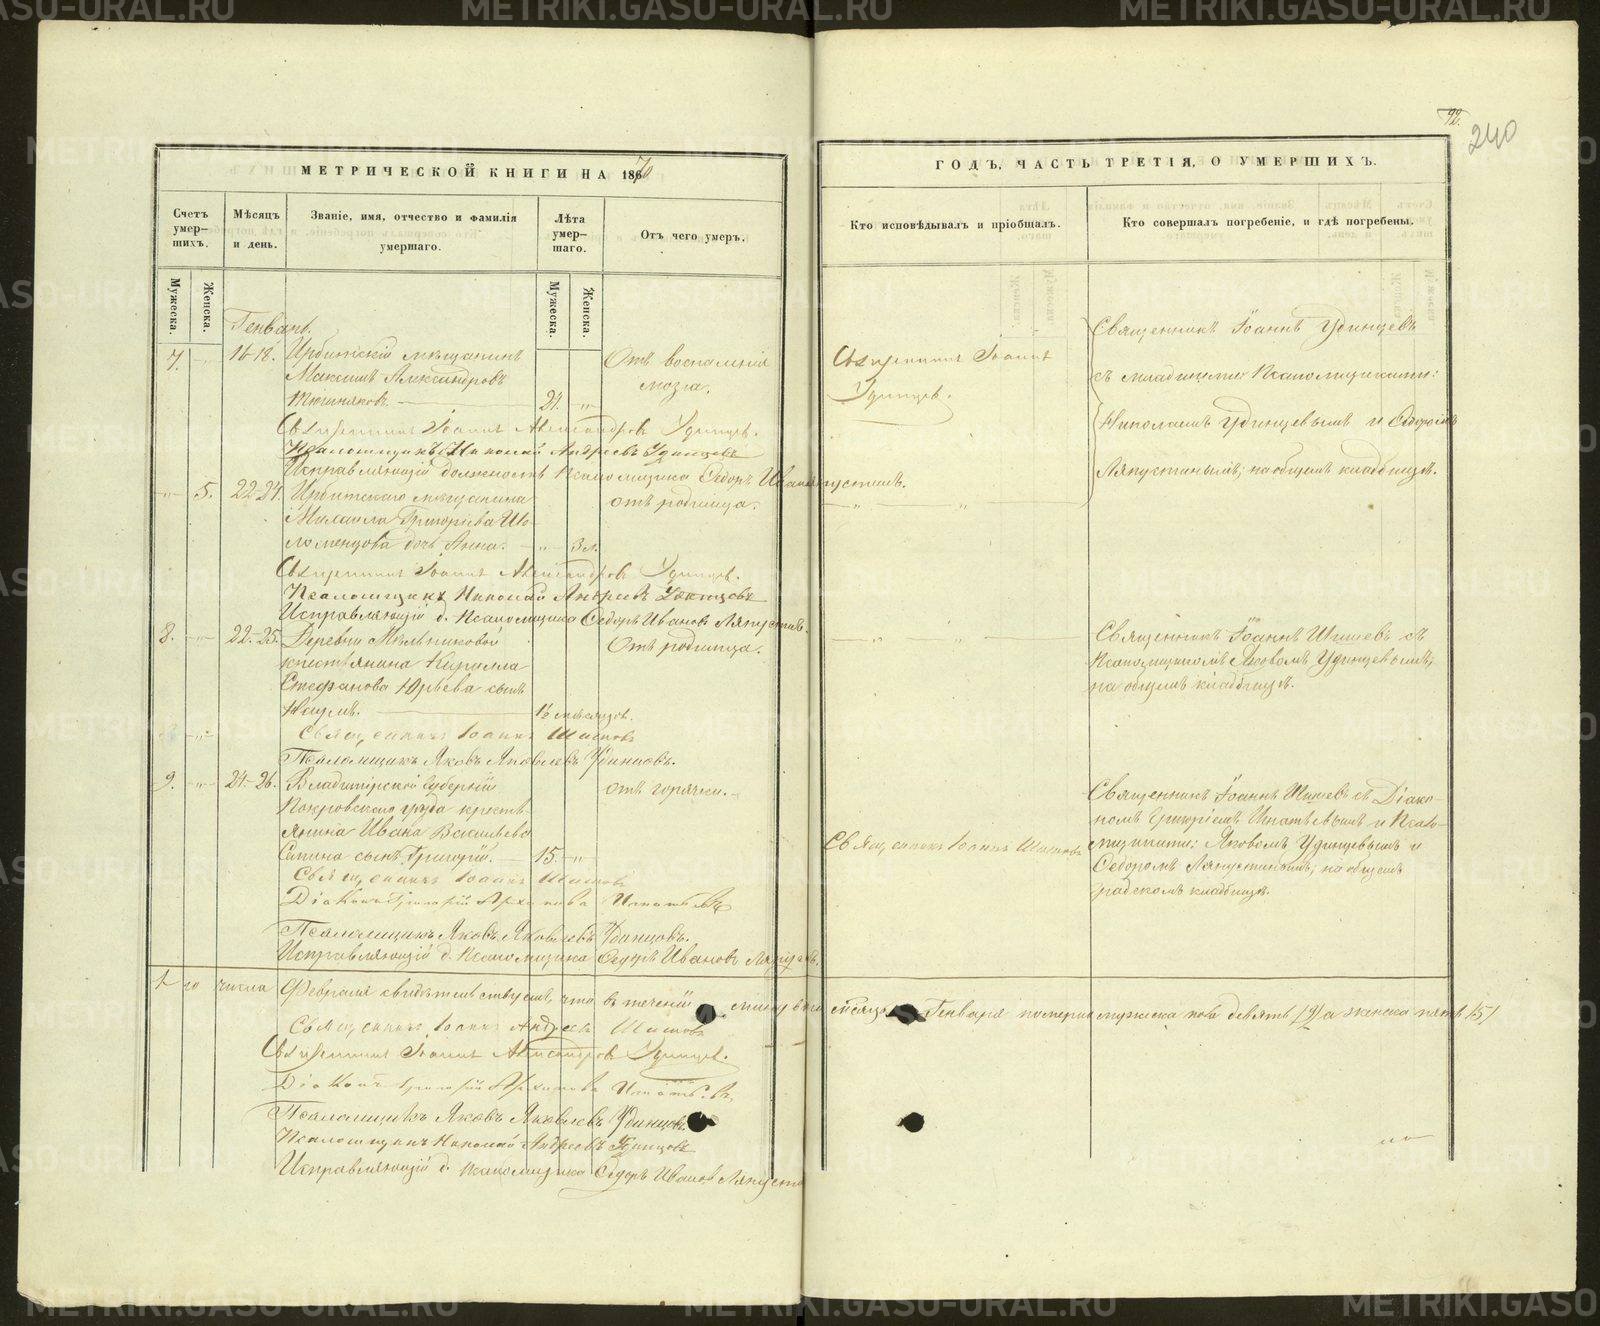 92.
240
МЕТРИЧЕСКОЙ КНИГИ НА 1870
ГОДЪ, ЧАСТЬ ТРЕТІЯ, О УМЕРШИХЪ.
Счетъ умер-шихъ.
Мѣсяцъ и день.
Званіе, имя, отчество и фамилія умершаго.
Лѣта умер-шаго.
Отъ чего умеръ.
Кто исповѣдывалъ и пріобщалъ.
Кто совершалъ погребеніе, и гдѣ погребены.
Мужеска.
Женска.
Мужеска.
Женска.
Генварь.
7.
16-18.
Ирбитскій мѣщанинъ
Максимъ Александровъ
21.
Отъ воспаленія
мозга.
Священникъ Іоаннъ
Удинцевъ.
Священникъ Іоаннъ Удинцевъ
съ младшими Псаломщиками:
Николаемъ Удинцевымъ и Ѳедоромъ
Ляпустинымъ; на общемъ кладбищѣ.
Священникъ Іоаннъ Александровъ Удинцевъ.
Псаломщикъ Николай Андреевъ Удинцевъ
Исправляющій должность Псаломщика Ѳедоръ Иванов Ляпустинъ.
5.
22-24.
Ирбитскаго мѣщанина
Михаила Григорьева
дочь Анна.
3 л.
отъ родимца.
Священникъ Іоаннъ Александровъ Удинцевъ.
Псаломщикъ Николай Андреевъ Удинцевъ
Исправляющій д. Псаломщика Ѳедоръ Ивановъ Ляпустинъ.
8.
22-25.
Деревни Мельниковой
крестьянина Кирилла
Стефанова Юрьева сынъ
Наумъ.
1½ мѣсяцов.
Отъ родимца.
Священникъ Іоаннъ Шишевъ съ
Псаломщикомъ Яковомъ Удинцевымъ,
на общемъ кладбищѣ.
Священникъ Іоаннъ Шишовъ
Псаломщикъ Яковъ Яковлевъ Удинцовъ.
9.
24-26.
Владимірской губерніи
Покровскаго уѣзда кресть-
янина Ивана Васильева
Сапина сынъ Григорій.
15.
отъ горячки.
Священникъ Іоаннъ Шишовъ
Священникъ Іоаннъ Шишевъ съ Діако-
номъ Григоріемъ Игнатьевымъ и Псало-
мщиками: Яковомъ Удинцевымъ и
Ѳедоромъ Ляпустинымъ, на общемъ
градскомъ кладбищѣ.
Священникъ Іоаннъ Шишовъ
Діаконъ Григорій Архипова Игнатьевъ
Псаломщикъ Яковъ Яковлевъ Удинцовъ.
Исправляющій д. Псаломщика Ѳедоръ Ивановъ Ляпустинъ.
1-го числа Февраля свидѣтельствуемъ, что въ теченіи минувшаго мѣсяца Генваря померло мужеска пола девять (9) а женска пять (5)
Священникъ Іоаннъ Андреевъ Шишовъ
Священникъ Іоаннъ Александровъ Удинцевъ.
Діаконъ Григорій Архипова Игнатьевъ,
Псаломщикъ Яковъ Яковлевъ Удинцовъ.
Псаломщикъ Николай Андреевъ Удинцовъ
Исправляющій д. Псаломщика Ѳедоръ Ивановъ Ляпустинъ
METRIKI.GASU-URAL.RU